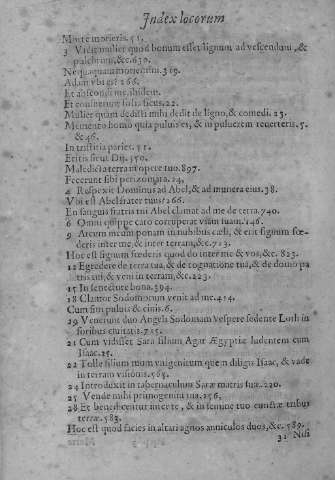 Index locorum
Morte morieris. 51.
3 Vidit mulier quod bonum esset lignum ad vescendum, &
pulchrum, &c. 630.
Nequaquam moriemini. 319.
Adam vbi es? 266.
Et abscondi me. ibidem.
Et consuerunt folia ficus. 22.
Mulier quam dedisti mihi dedit de ligno, & comedi. 23.
Memento homo quia puluis es, & in puluerem reuerteris. 5.
& 46.
In tristitia paries. 51.
Eritis sicut Dij. 350.
Maledicta terra in opere tuo. 897.
Fecerunt sibi perizomata. 24.
4 Respexit Dominus ad Abel, & ad munera eius. 38.
Vbi est Abel frater tuus? 266.
En sanguis fratris tui Abel clamat ad me de terra. 740.
6 Omni quippe caro corruperat viam suam. 146.
9 Arcum meum ponam in nubibus cœli, & erit signum fœ-
deris inter me, & inter terram, &c. 713.
Hoc est signum fœderis quod do inter me & vos, &c. 823.
12 Egredere de terra tua, & de cognatione tua, & de domo pa
tris tui, & veni in terram, &c. 223.
15 In senectute bona. 394.
18 Clamor Sodomorum venit ad me. 454.
Cum sim puluis & cinis. 6.
19 Venerunt duo Angeli Sodomam vespere sedente Loth in
foribus ciuitatis. 725.
21 Cum vidisset Sara filium Agar Ægyptiæ ludentem cum
Isaac. 15.
22 Tolle filium tuum vnigenitum quem diligis Isaac, & vade
in terram visionis. 565.
24 Introduxit in tabernaculum Saræ matris suæ. 220.
25 Vende mihi primogenita tua. 256.
28 Et benedicentur in te, & in semine tuo cunctæ tribus
terræ. 583.
Hoc est quod facies in altari agnos anniculos duos, &c. 589.
31 Nisi